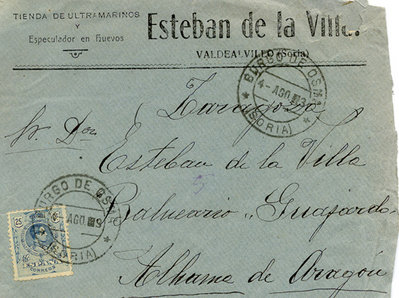 TIENDA DE ULTRAMARINOS
Y
Especulador en Huevos
Esteban de la Villa.
VALDEALVILLO (Soria)
BURGO DE OSMA
4- AGO
(SORIA)
Zaragoza
Sr. Dn
Esteban de la Villa
5
Balneario "Guajardo"
Alhama de Aragón
BURGO DE OSMA
AGO
25
CORREOS